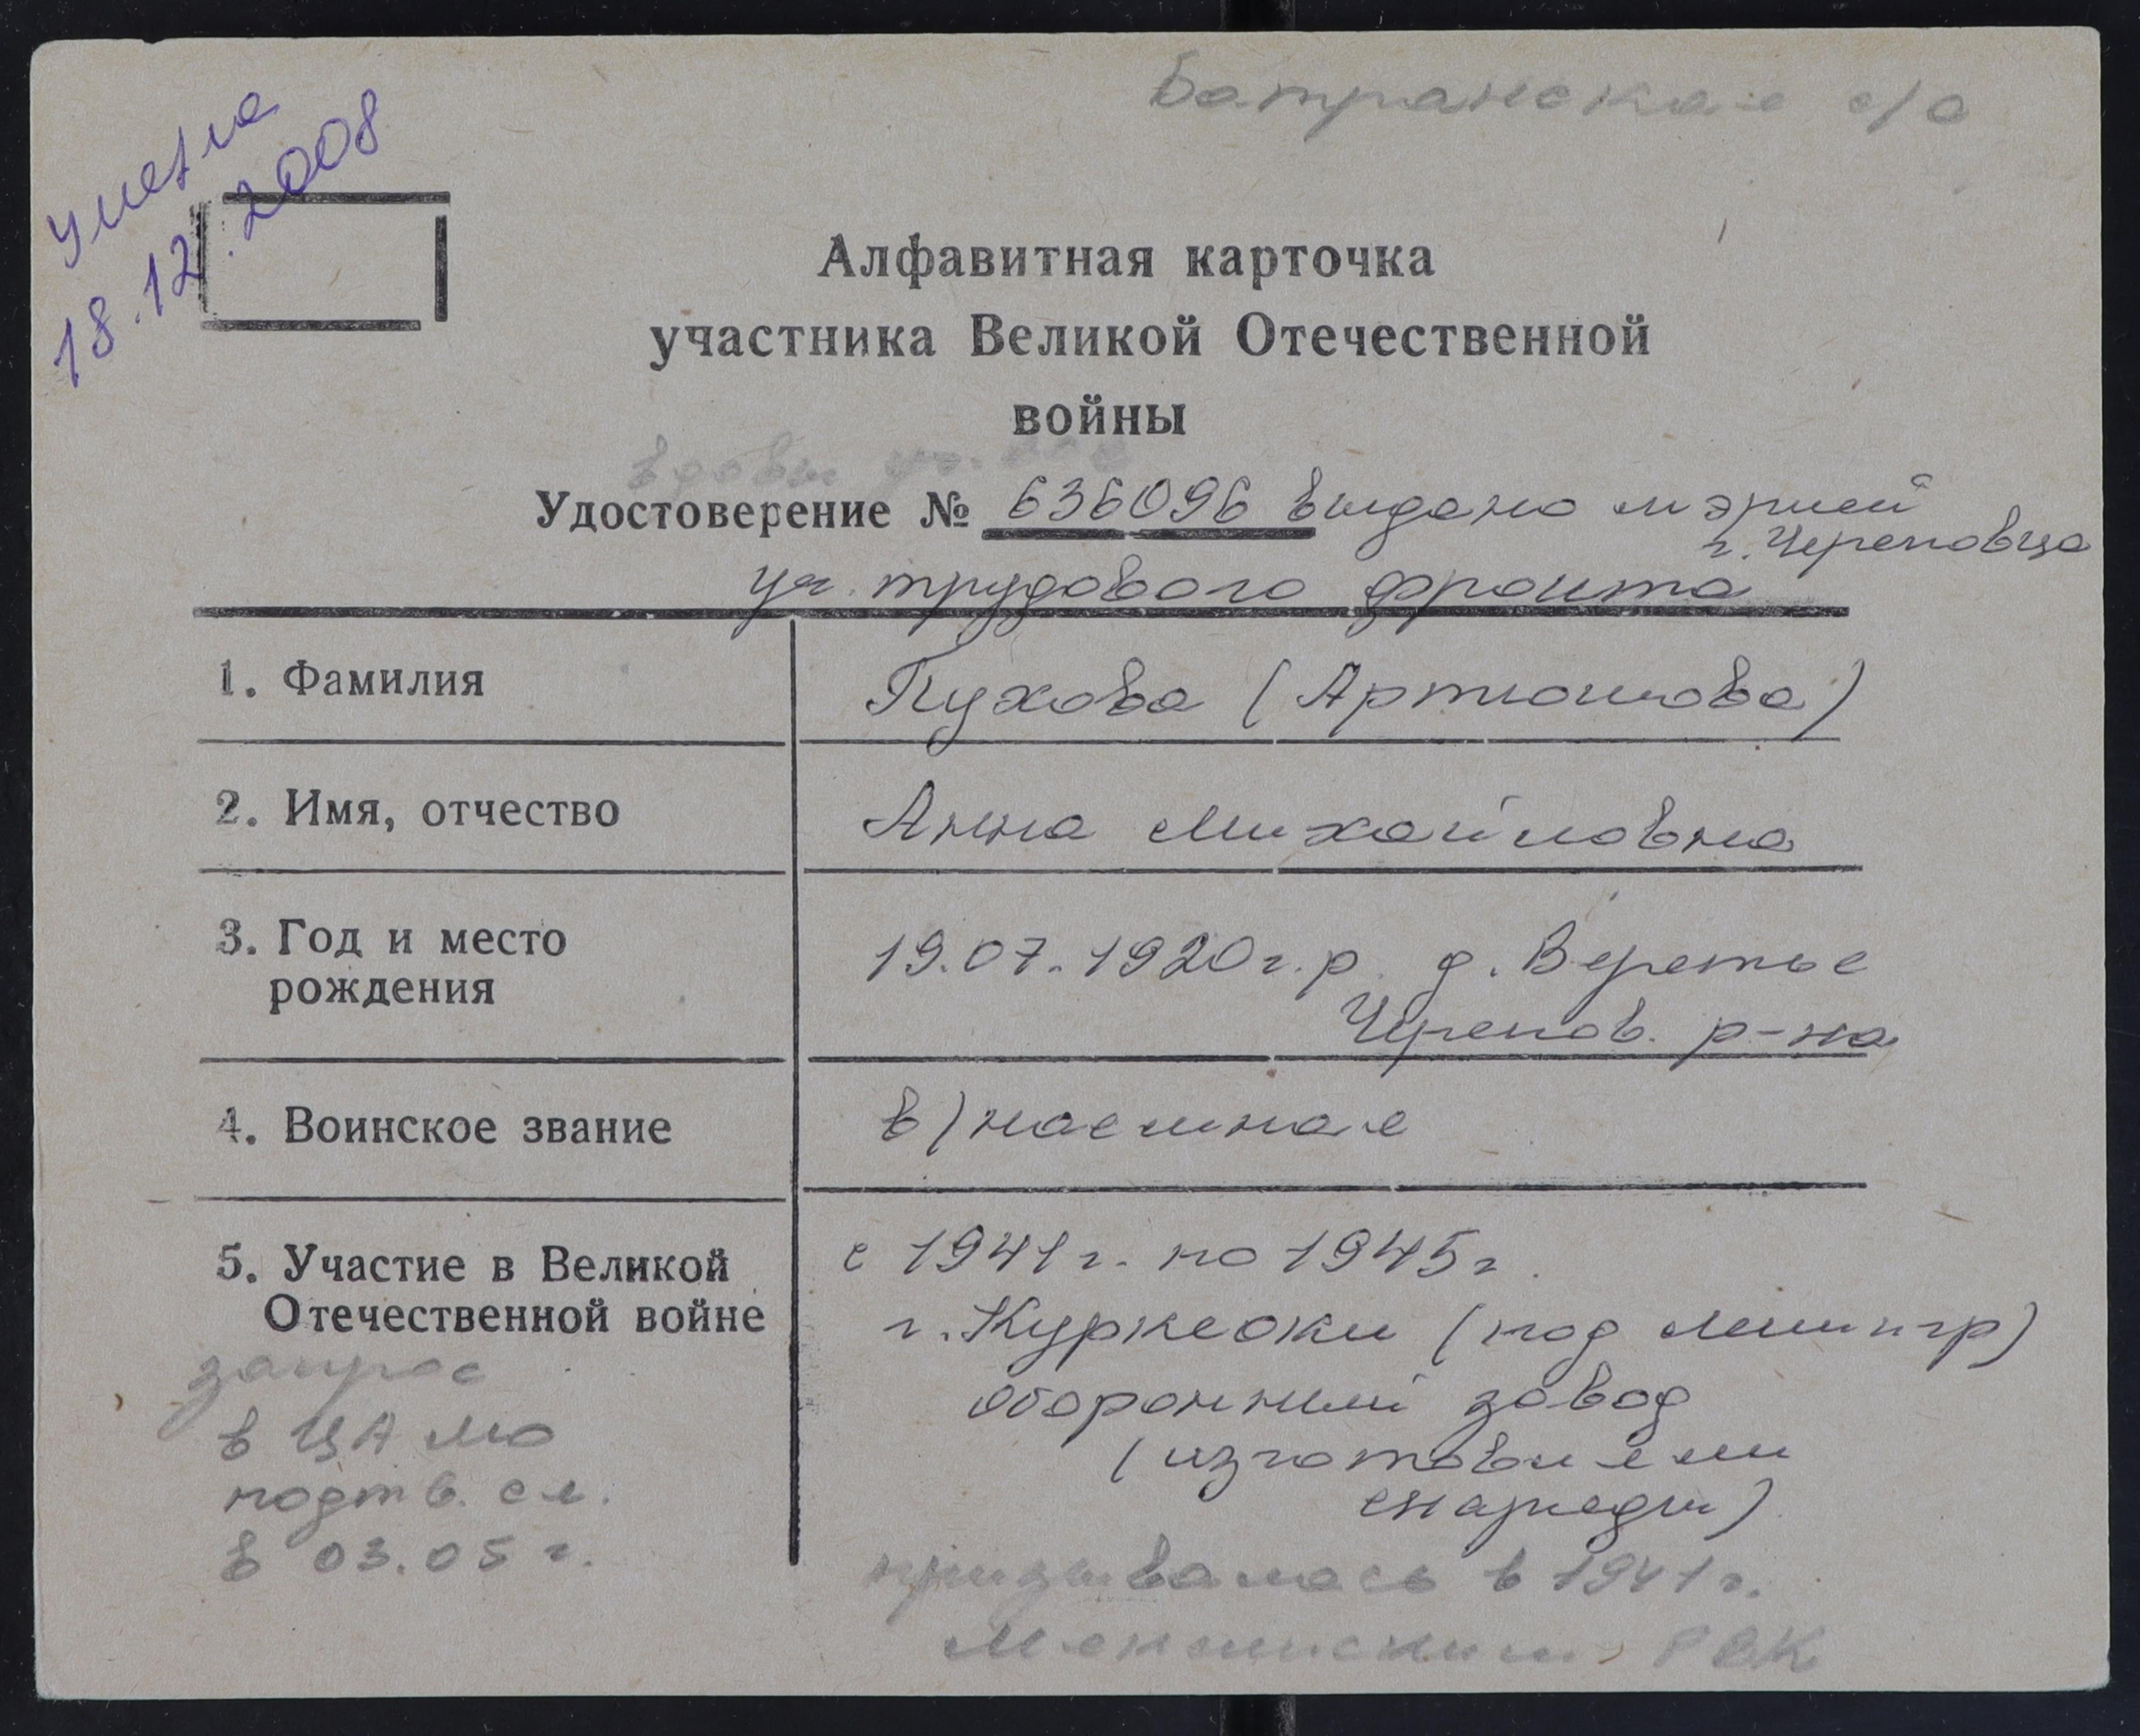 Батранская с/а
умерла
18.12.2008
Алфавитная карточка
участника Великой Отечественной
войны
вдовы уч.
Удостоверение № 636096 выдано мэрией
г. Череповца
уч. трудового фронта
1. Фамилия
Пухова (Артюшова)
2. Имя, отчество
Анна Михайловна
3. Год и место
рождения
19.07.1920г.р. д. Веретье
Черепов. р-на
4. Воинское звание
в/наемная
5. Участие в Великой
Отечественной войне
с 1941г. по 1945г.
г. Куркеоки (под Ленингр)
оборонный завод
(изготовляли
снаряды)
запрос
в ЦАМО
подтв. сл.
в 03.05 г.
призывалась в 1941г.
РВК